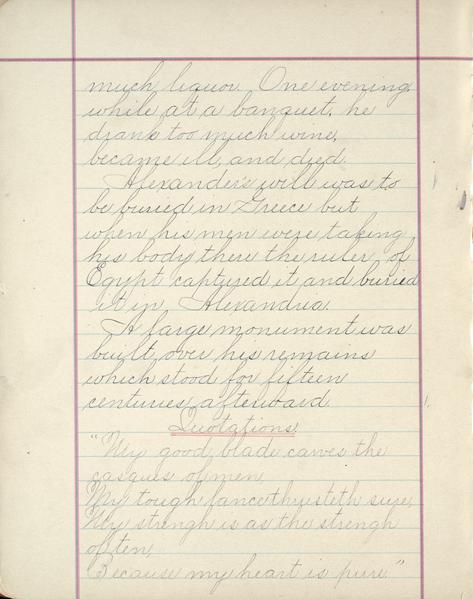 much liquor. One evening
while at a banquet, he
drank too much wine,
became ill, and died.
Alexander's will was to
be buried in Greece but
when his men were taking
his body there the ruler of
Egypt captured it and buried
it in Alexandria.
A large monument was
built over his remains
which stood for fifteen
centuries afterward.
Quotations
"My good blade carves the
casques of men,
My tough lance thrusteth sure,
My strengh is as the strengh
of ten,
Because my heart is pure."